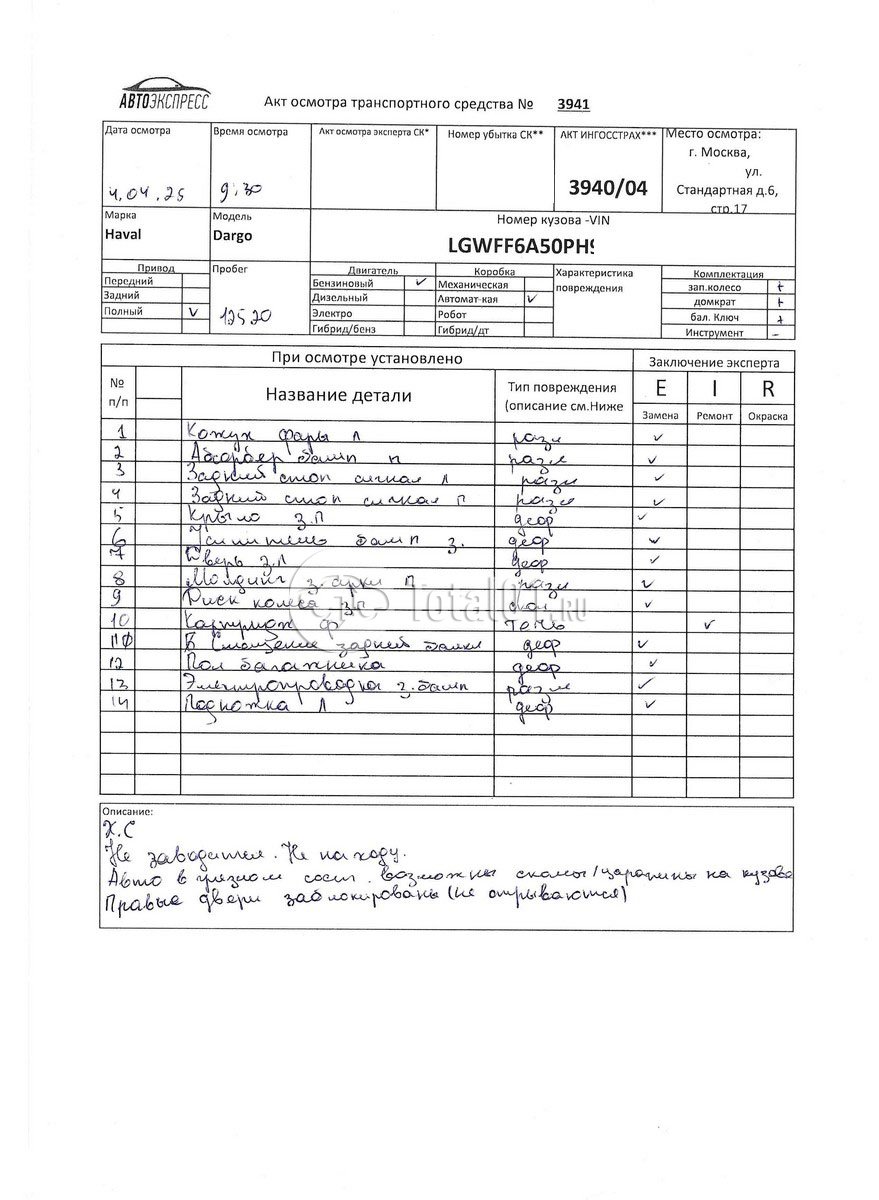 АВТОЭКСПРЕСС
Акт осмотра транспортного средства № 3941
Дата осмотра Время осмотра Акт осмотра эксперта СК* Номер убытка СК** АКТ ИНГОССТРАХ*** Место осмотра:
г. Москва,
ул.
4.04.25 9:30 3940/04 Стандартная д.6,
стр.17
Марка Модель Номер кузова -VIN
Haval Dargo LGWFF6A50PH
Привод Пробег Двигатель Коробка Характеристика Комплектация
Передний Бензиновый ✓ Механическая повреждения зап.колесо +
Задний Дизельный Автомат-кая ✓ домкрат +
Полный V 12520 Электро Робот бал. Ключ +
Гибрид/бенз Гибрид/дт Инструмент -
При осмотре установлено Заключение эксперта
№ п/п Название детали Тип повреждения E I R
(описание см.Ниже Замена Ремонт Окраска
1 Кожух фары Л разл ✓
2 Абсорбер бамп п разл ✓
3 Задний стоп сигнал Л разл ✓
4 Задний стоп сигнал П разл ✓
5 Крыло з.П деф ✓
6 бамп з. деф ✓
7 Дверь з.Л деф ✓
8 Молдинг з.арки П разл ✓
9 Диск колеса з.П скол ✓
10 ✓
задней балки деф ✓
12 Пол багажника деф ✓
13 Электропроводка з.бамп разл ✓
14 Подножка Л деф ✓
Total01.RU
Описание:
Х.С
Не заводится. Не на ходу.
Авто в грязном сост. возможны сколы/царапины на кузове
Правые двери заблокированы (не открываются)